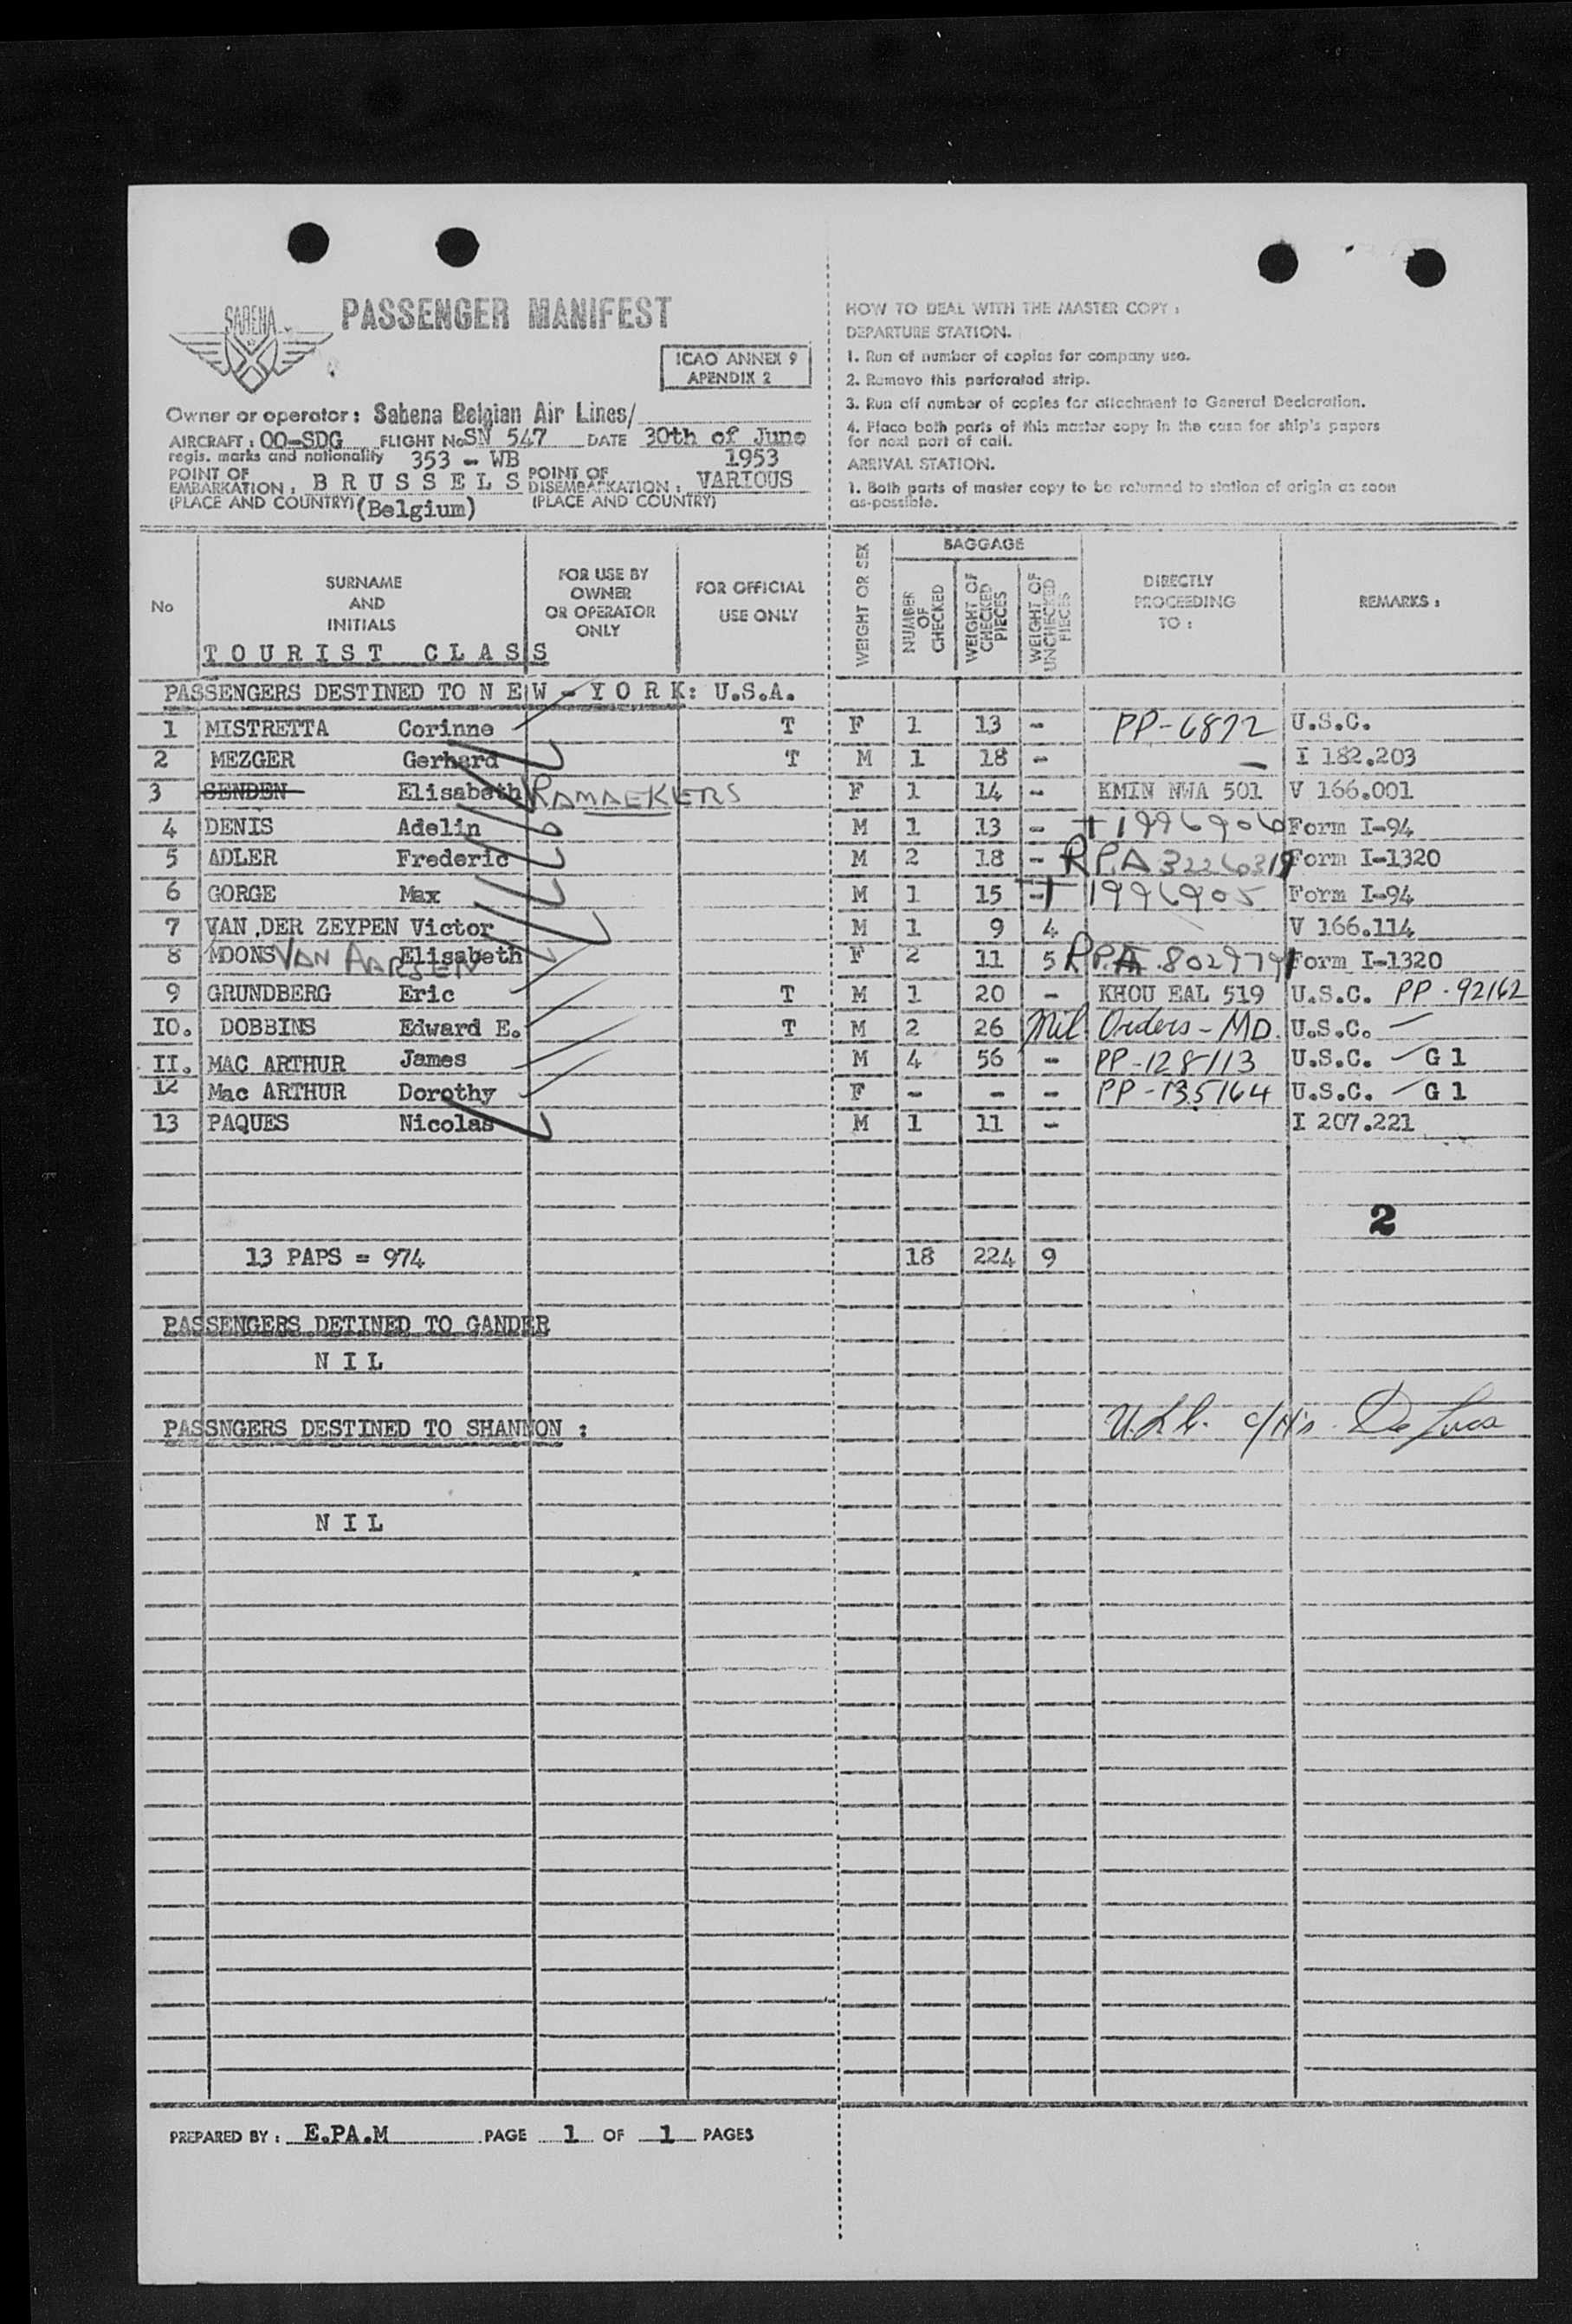 SABENA
PASSENGER MANIFEST
ICAO ANNEX 9
APENDIX 2
Owner or operator: Sabena Belgian Air Lines/
AIRCRAFT: OO-SDG FLIGHT No SN 547 DATE 30th of June
regis. marks and nationality 353 - WB 1953
POINT OF EMBARKATION: B R U S S E L S POINT OF DISEMBARKATION: VARIOUS
(PLACE AND COUNTRY) (Belgium) (PLACE AND COUNTRY)
HOW TO DEAL WITH THE MASTER COPY:
DEPARTURE STATION.
1. Run of number of copies for company use.
2. Remove this perforated strip.
3. Run off number of copies for attachment to General Declaration.
4. Place both parts of this master copy in the case for ship's papers
for next port of call.
ARRIVAL STATION.
1. Both parts of master copy to be returned to station of origin as soon
as-possible.
No SURNAME AND INITIALS FOR USE BY OWNER OR OPERATOR ONLY FOR OFFICIAL USE ONLY WEIGHT OR SEX BAGGAGE NUMBER OF CHECKED WEIGHT OF CHECKED PIECES WEIGHT OF UNCHECKED PIECES DIRECTLY PROCEEDING TO: REMARKS:
T O U R I S T C L A S S
PASSENGERS DESTINED TO N E W - Y O R K: U.S.A.
1 MISTRETTA Corinne T F 1 13 - PP-6872 U.S.C.
2 MEZGER Gerhard T M 1 18 - - I 182.203
3 SENDEN Elisabeth RAMAEKERS F 1 14 - KMIN NWA 501 V 166.001
4 DENIS Adelin M 1 13 - T 1996906 Form I-94
5 ADLER Frederic M 2 18 - R.P.A 32260319 Form I-1320
6 GORGE Max M 1 15 - T 1996905 Form I-94
7 VAN DER ZEYPEN Victor M 1 9 4 V 166.114
8 MOONS VAN AARSEN Elisabeth F 2 11 5 R.P.A. Form I-1320
9 GRUNDBERG Eric T M 1 20 - KHOU EAL 519 U.S.C. PP-92162
10. DOBBINS Edward E. T M 2 26 Mil Orders - MD. U.S.C. -
11. MAC ARTHUR James M 4 56 - PP-128113 U.S.C. - G 1
12 Mac ARTHUR Dorothy F - - - PP-135164 U.S.C. - G 1
13 PAQUES Nicolas M 1 11 - I 207.221
2
13 PAPS = 974 18 224 9
PASSENGERS DETINED TO GANDER
N I L
PASSNGERS DESTINED TO SHANNON :
De Luca
N I L
PREPARED BY: E.PA.M PAGE 1 OF 1 PAGES